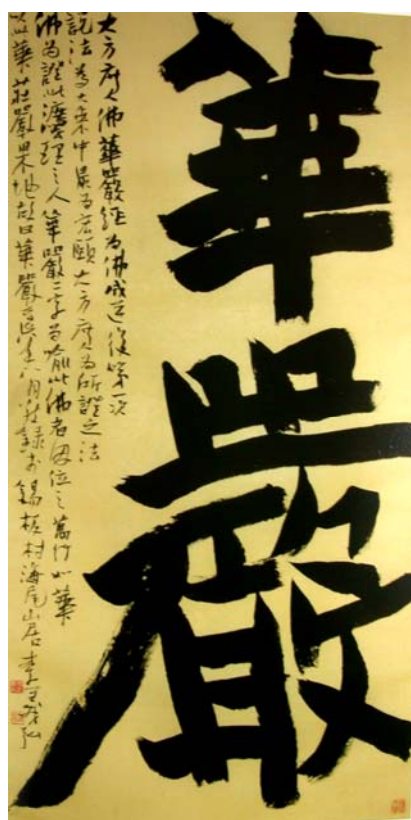 華嚴
大方廣佛華嚴經為佛成道後第一次
說法為大乘中最為宏頤大方廣為所證之法
佛為證此理之人華嚴二字為喻此佛者因位之萬行如華
以華莊嚴果地故曰華嚴八月錄於錫板村海尾山居李